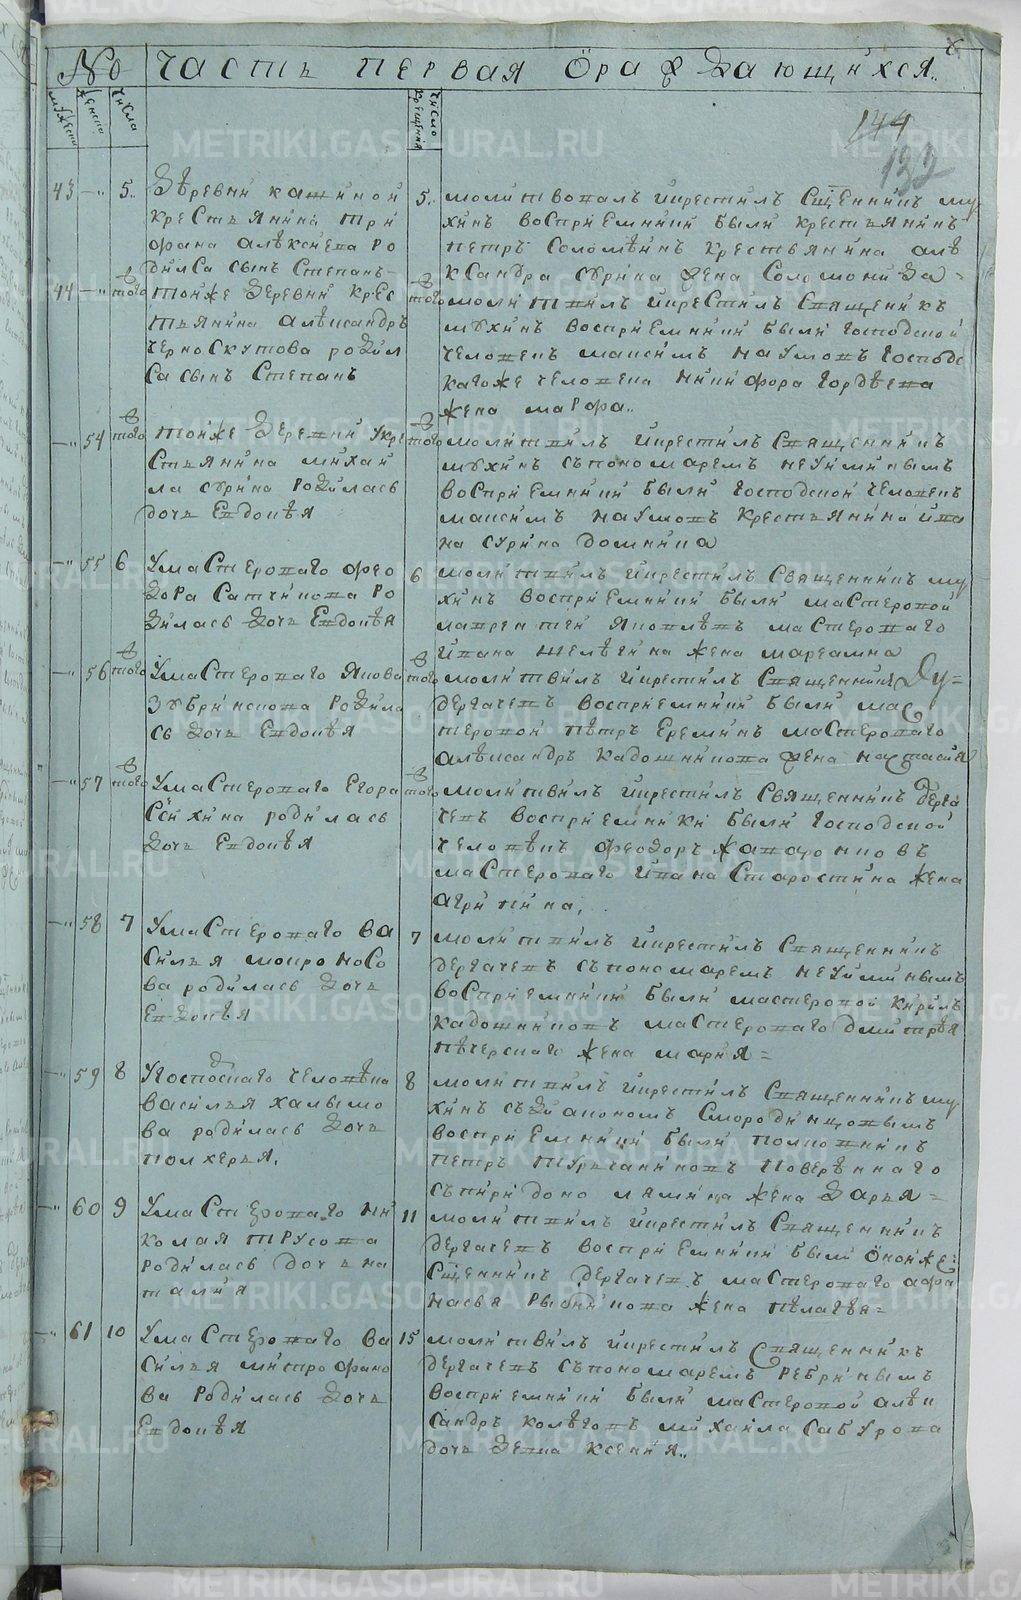 № Часть первая ôраждающихся..
мужеска
женска
числа
число крещения
144
132
43 —„ 5.. Деревни кашиной
крестьянина Три
фана Алексиева ро
дился сынъ Степанъ
5.. молитвовалъ икрестилъ Сщенникъ му
хинъ восприемники были крестьянинъ
петръ Соломѣинъ крестьянина алѣ
ксандра сурина жена Соломонида =
44 —„ в того тойже деревни крес
тьянина алѣксандръ
черноскутова родил
са сынъ Степанъ
в того молитвилъ икрестилъ Священикъ
мухинъ восприемники были господской
человекъ максимъ наумовъ господс
когоже человека никифора гордѣева
жена марфа..
—„ 54 в того тойже деревни укре
стьянина михаи
ла сурина родилась
дочь Евдокѣя
в того молитвилъ икрестилъ Священникъ
мухинъ съпономаремъ неуйминымъ
восприемники были господской человекъ
максимъ наумовъ крестьянина ива
на сурина домнина
—„ 55 6 Умастероваго фео
дора Сатчикова ро
дилась дочь Евдокѣя
6 молитвилъ икрестилъ Священникъ му
хинъ восприемники были мастеровой
лаврентей яковлевъ мастероваго
ивана шелѣгина жена мареамна
—„ 56 в того Умастероваго якова
зубрицкова родила
сь дочь Евдокѣя
в того молитвилъ икрестилъ Священникъ
дергачевъ восприемники были мас
теровой пѣтръ Ереминъ мастероваго
алѣксандръ кадошникова жена настасия
—„ 57 в того Умастероваго Егора
родилась
дочь Евдокѣя
в того молитвилъ икрестилъ Священникъ дерга
чевъ восприемники были господской
человѣкъ феодоръ жаваронковъ
мастероваго ивана старостина жена
агрипина,
—„ 58 7 Умастероваго ва
силья мокроносо
ва родилась дочь
Евдокѣя
7 молитвилъ икрестилъ Священникъ
дергачевъ съпономаремъ неуйминымъ
восприемники были мастеровой кирилъ
кадошниковъ мастероваго дмитрѣя
пѣчерскаго жена мария =
—„ 59 8 Угосподскаго человѣка
василья халымо
ва родилась дочь
полхерья,
8 молитвилъ икрестилъ Священникъ му
хинъ съдиакономъ Смородинцовымъ
восприемники были полковникъ
петръ турчаниновъ поверѣннаго
съпиридоно лямина жена дарья =
—„ 60 9 Умастероваго ни
колая трусова
родилась дочь на
талия
11 молитвилъ икрестилъ Священникъ
дергачевъ восприемники были ôнойже
Сщенникъ дергачевъ мастероваго афа
насья рыбникова жена пѣлагѣя =
—„ 61 10 Умастероваго ва
силья митрофано
ва родилась дочь
Евдокѣя
15 молитвилъ икрестилъ Священникъ
дергачевъ съпономаремъ ребринымъ
восприемники были мастеровой алѣк
сандръ колѣговъ михаила сабурова
дочь девка ксения..
METRIKI.GASO-URAL.RU